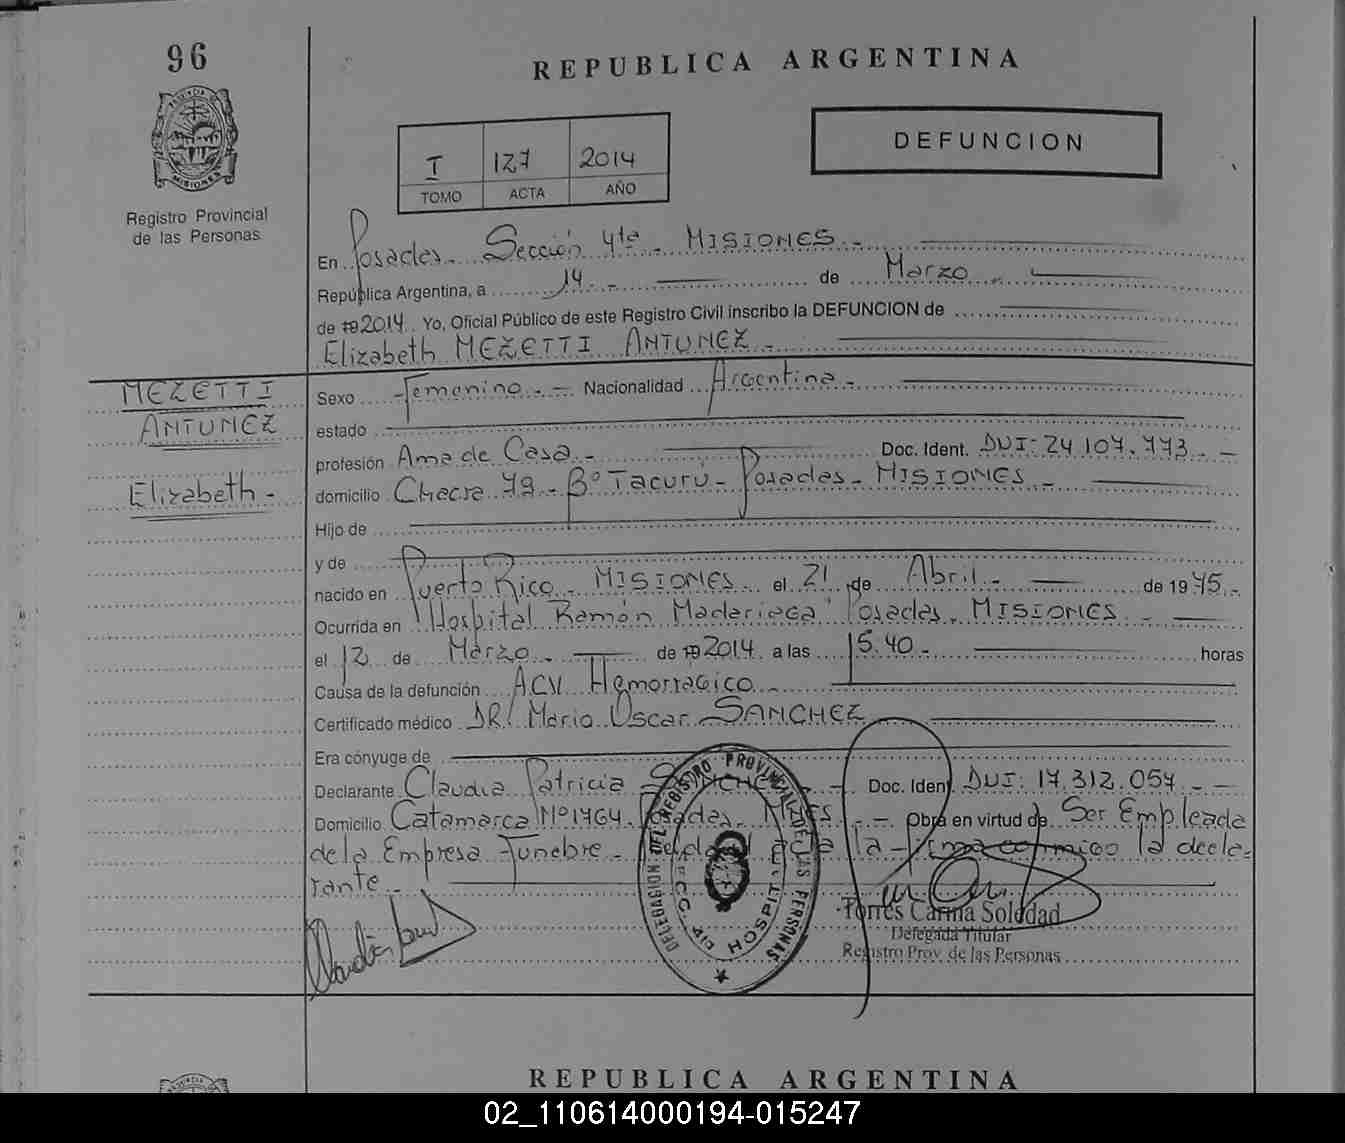 96
REPUBLICA ARGENTINA
DEFUNCION
I 127 2014
TOMO ACTA AÑO
Registro Provincial
de las Personas
En Posadas - Sección 4ta - MISIONES -
República Argentina, a 14 - de Marzo -
de 19 2014 Yo, Oficial Público de este Registro Civil inscribo la DEFUNCION de
Elizabeth MEZETTI ANTUNEZ -
MEZETTI
ANTUNEZ
Elizabeth -
Sexo Femenino - Nacionalidad Argentina -
estado
profesión Ama de Casa - Doc. Ident. DUI: 24.107.773 -
domicilio Chacra 79 - B° Tacurú - Posadas - MISIONES -
Hijo de
y de
nacido en Puerto Rico - MISIONES - el 21 de Abril - de 1975 -
Ocurrida en "Hospital Ramón Madariaga" Posadas - MISIONES -
el 12 de Marzo - de 19 2014 a las 15:40 - horas
Causa de la defunción ACV Hemorragico -
Certificado médico DR: Mario Oscar SANCHEZ
Era cónyuge de
Declarante Claudia Patricia Doc. Ident DUI: 17.312.057 -
Domicilio Catamarca N° 1764 Posadas - Obra en virtud de Ser Empleada
de la Empresa Funebre - la - firma conmigo la decla-
rante -
DELEGACION DEL REGISTRO PROVINCIAL DE LAS PERSONAS
SECC. 4ta HOSPIT
Torres Carina Soledad
Delegada Titular
Registro Prov. de las Personas
MISIONES
REPUBLICA ARGENTINA
02_110614000194-015247